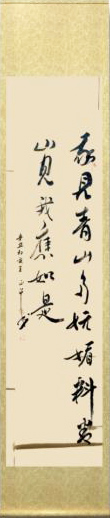 我見青山多妩媚料青
山見我應如是